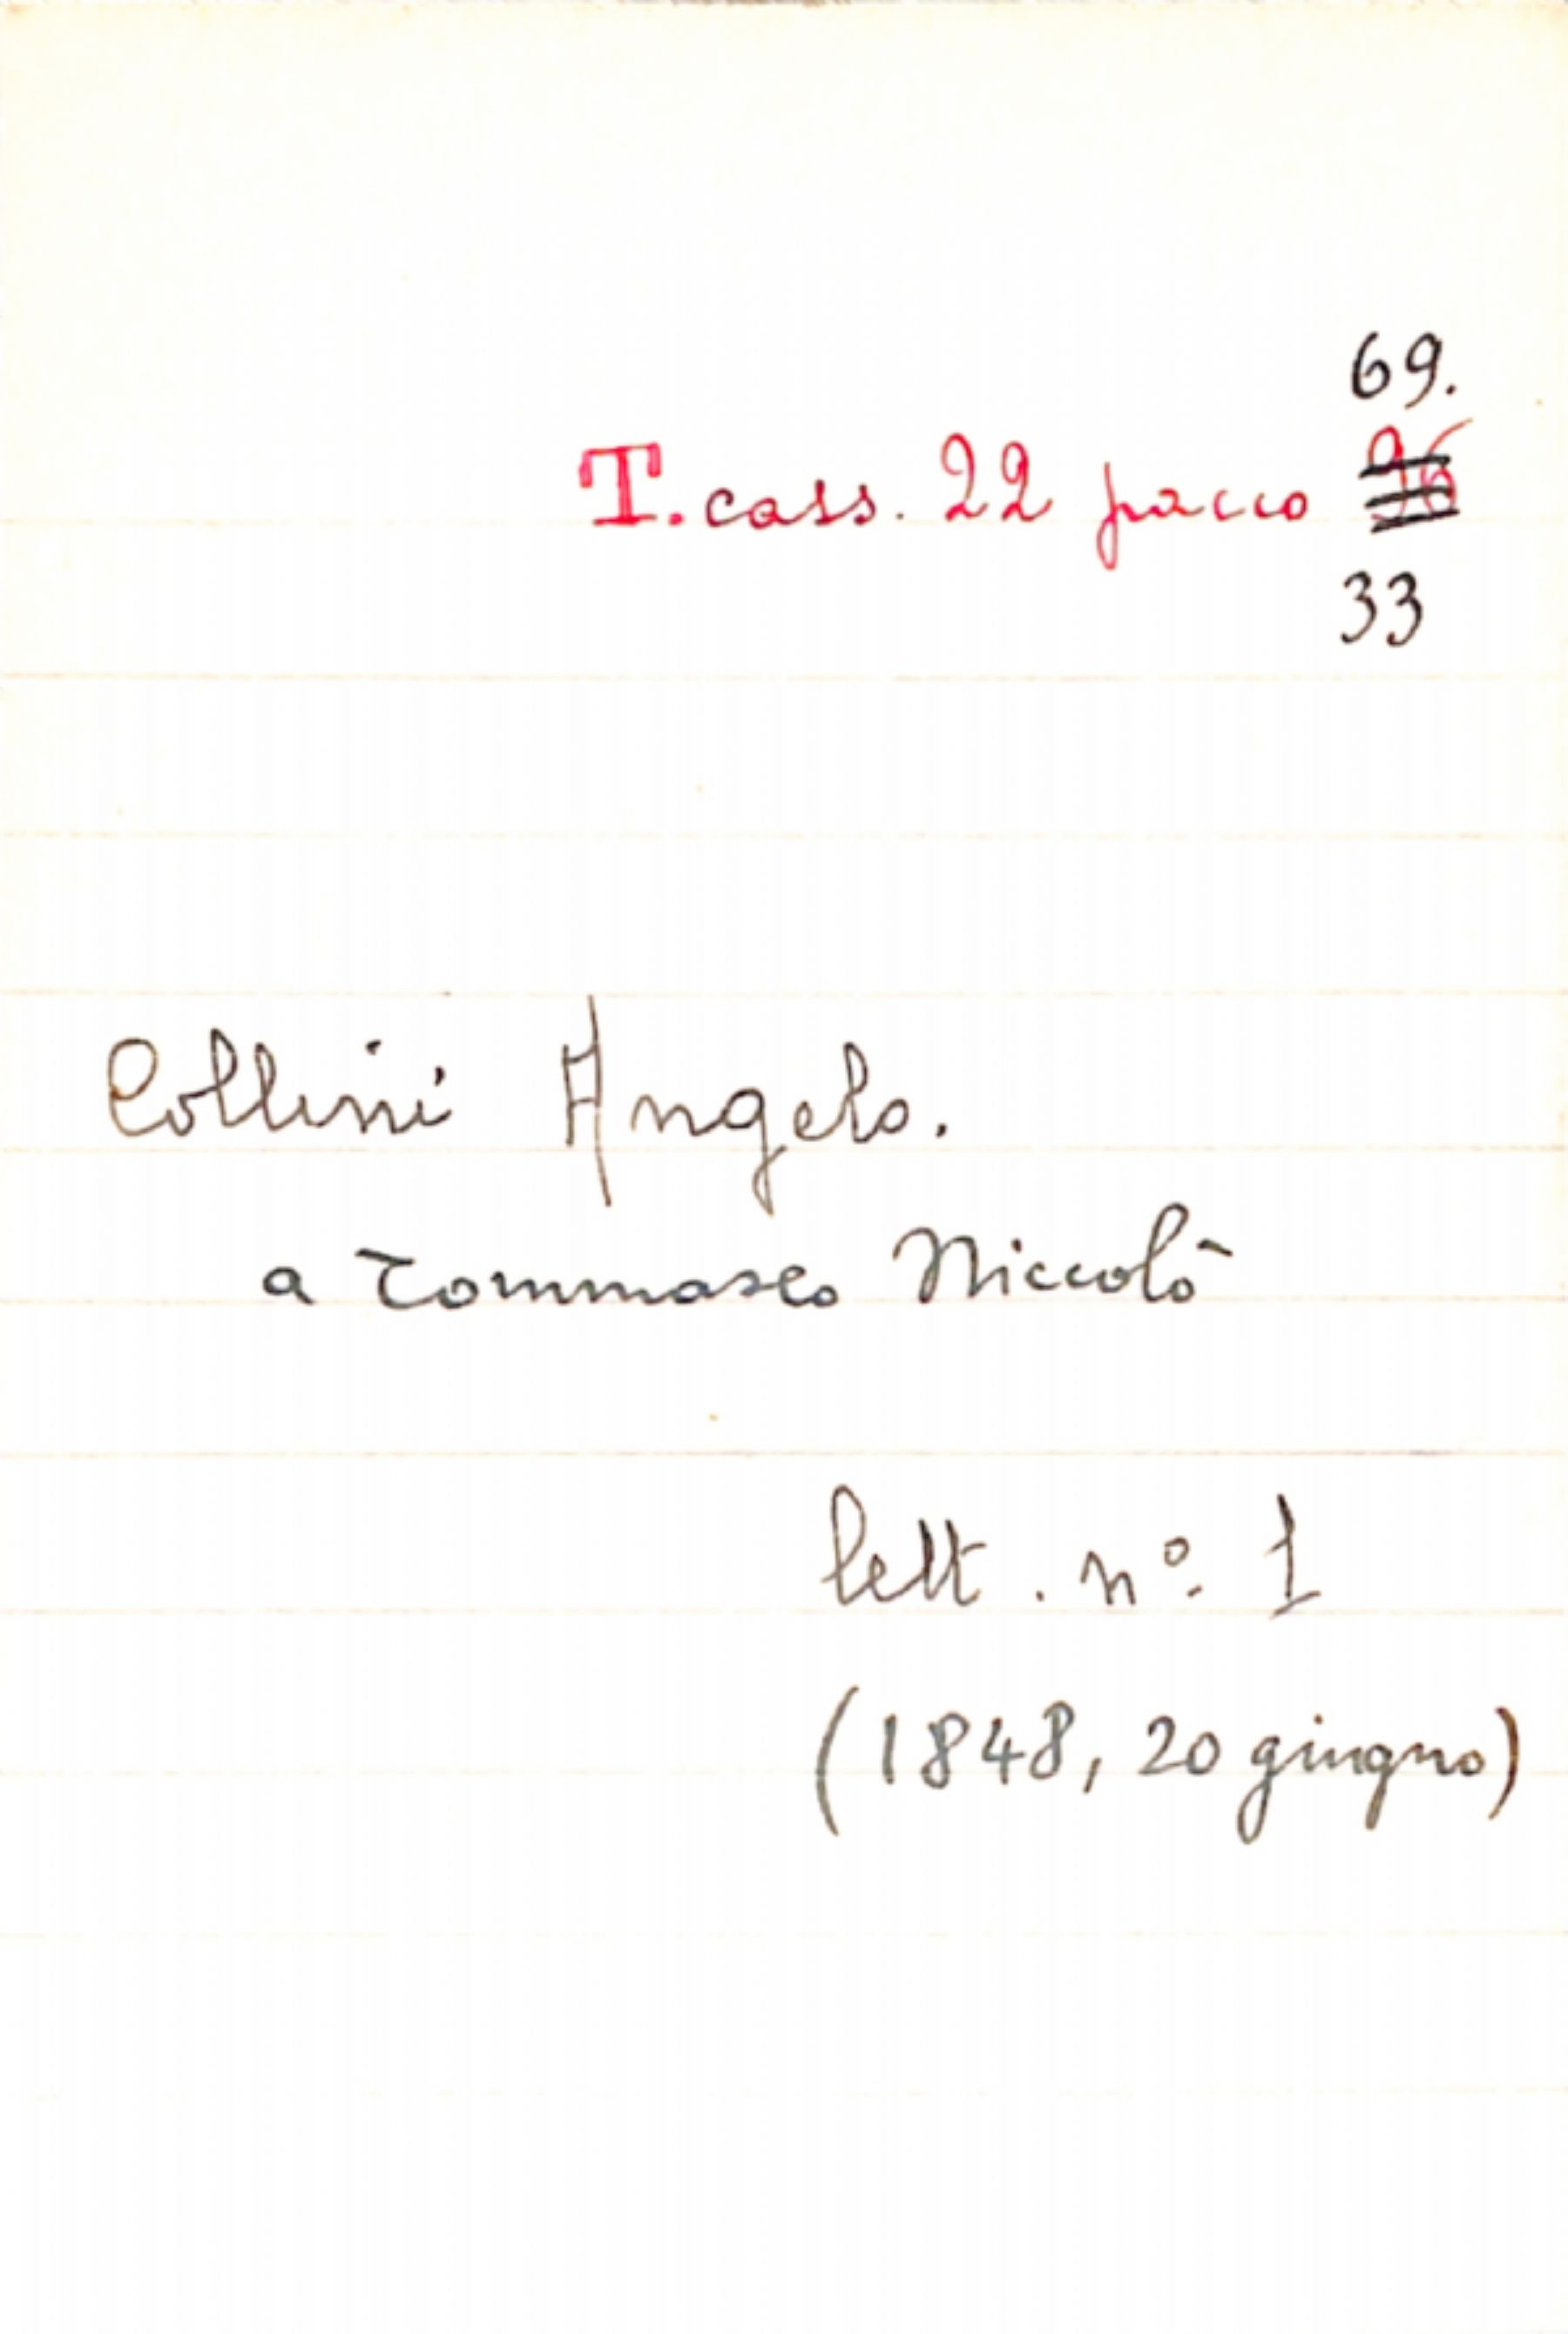 69.
T. cass. 22 pacco
33
Collini Angelo.
a Tommaseo Niccolò
lett. nº. 1
(1848, 20 giugno)